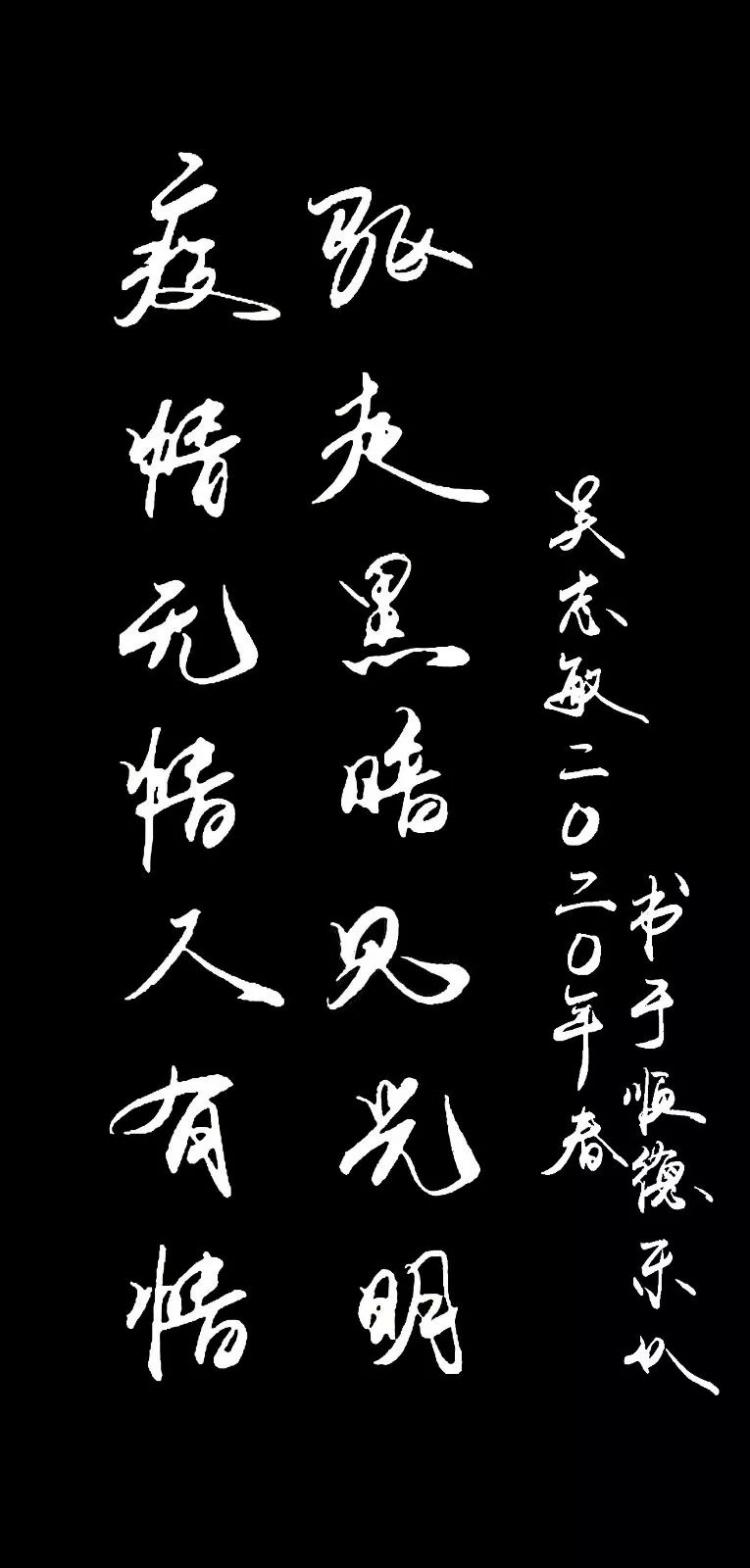 疫情无情人有情
驱走黑暗见光明
吴志敏二〇二〇年春
书于顺德乐从